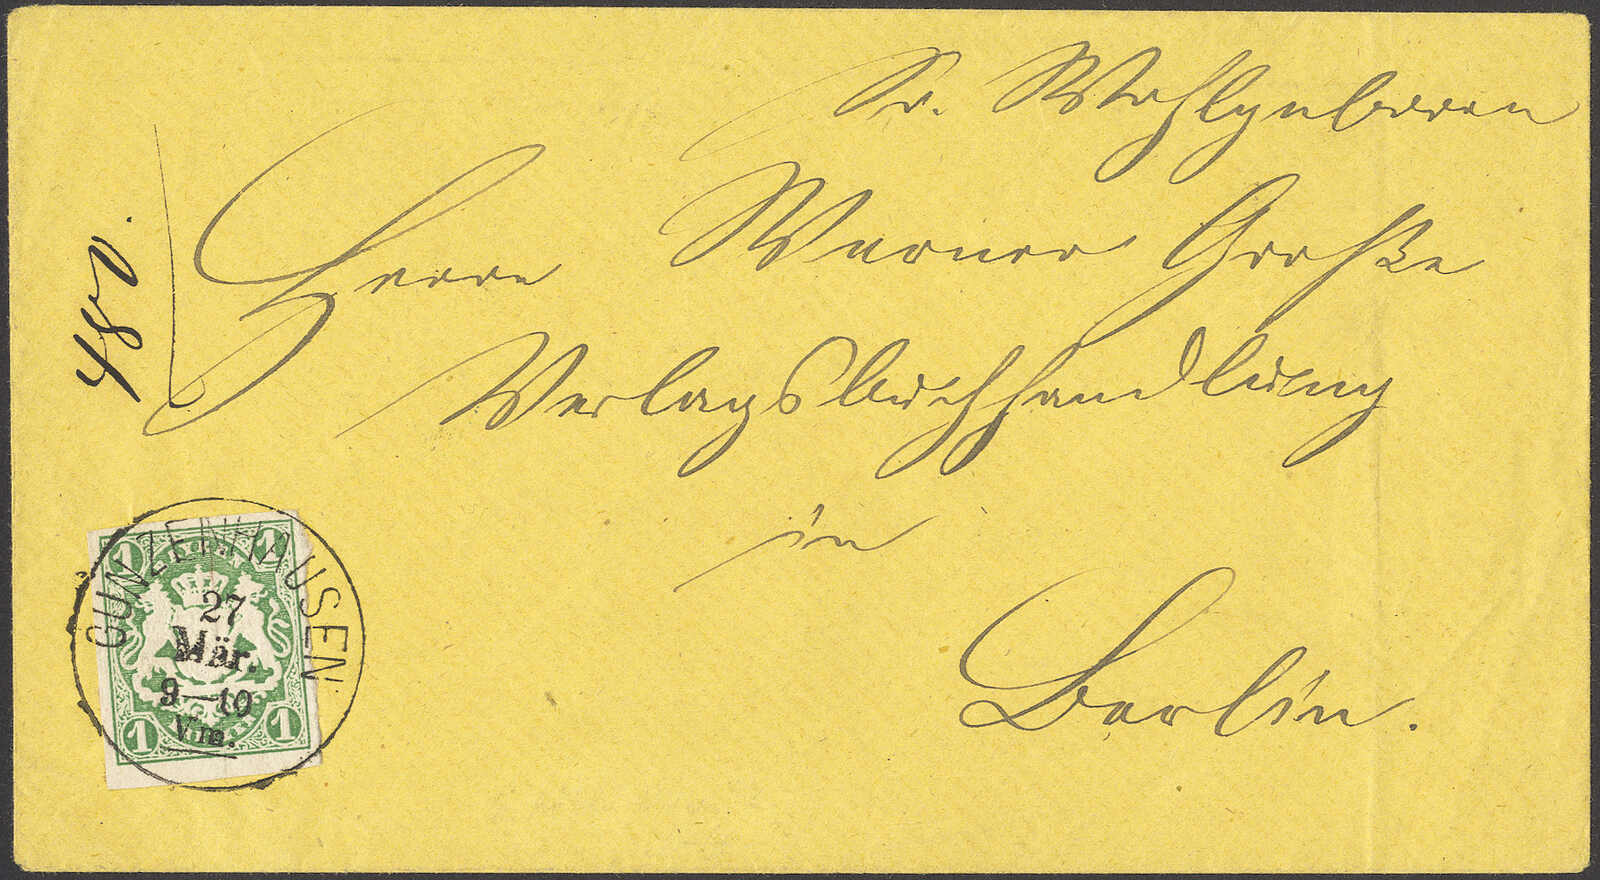 Sr. Wohlgeboren
Herrn Werner Große
Verlagsbuchhandlung
in
Berlin.
GUNZENHAUSEN
27
Mär.
9—10
Vm.
1 1
1 1